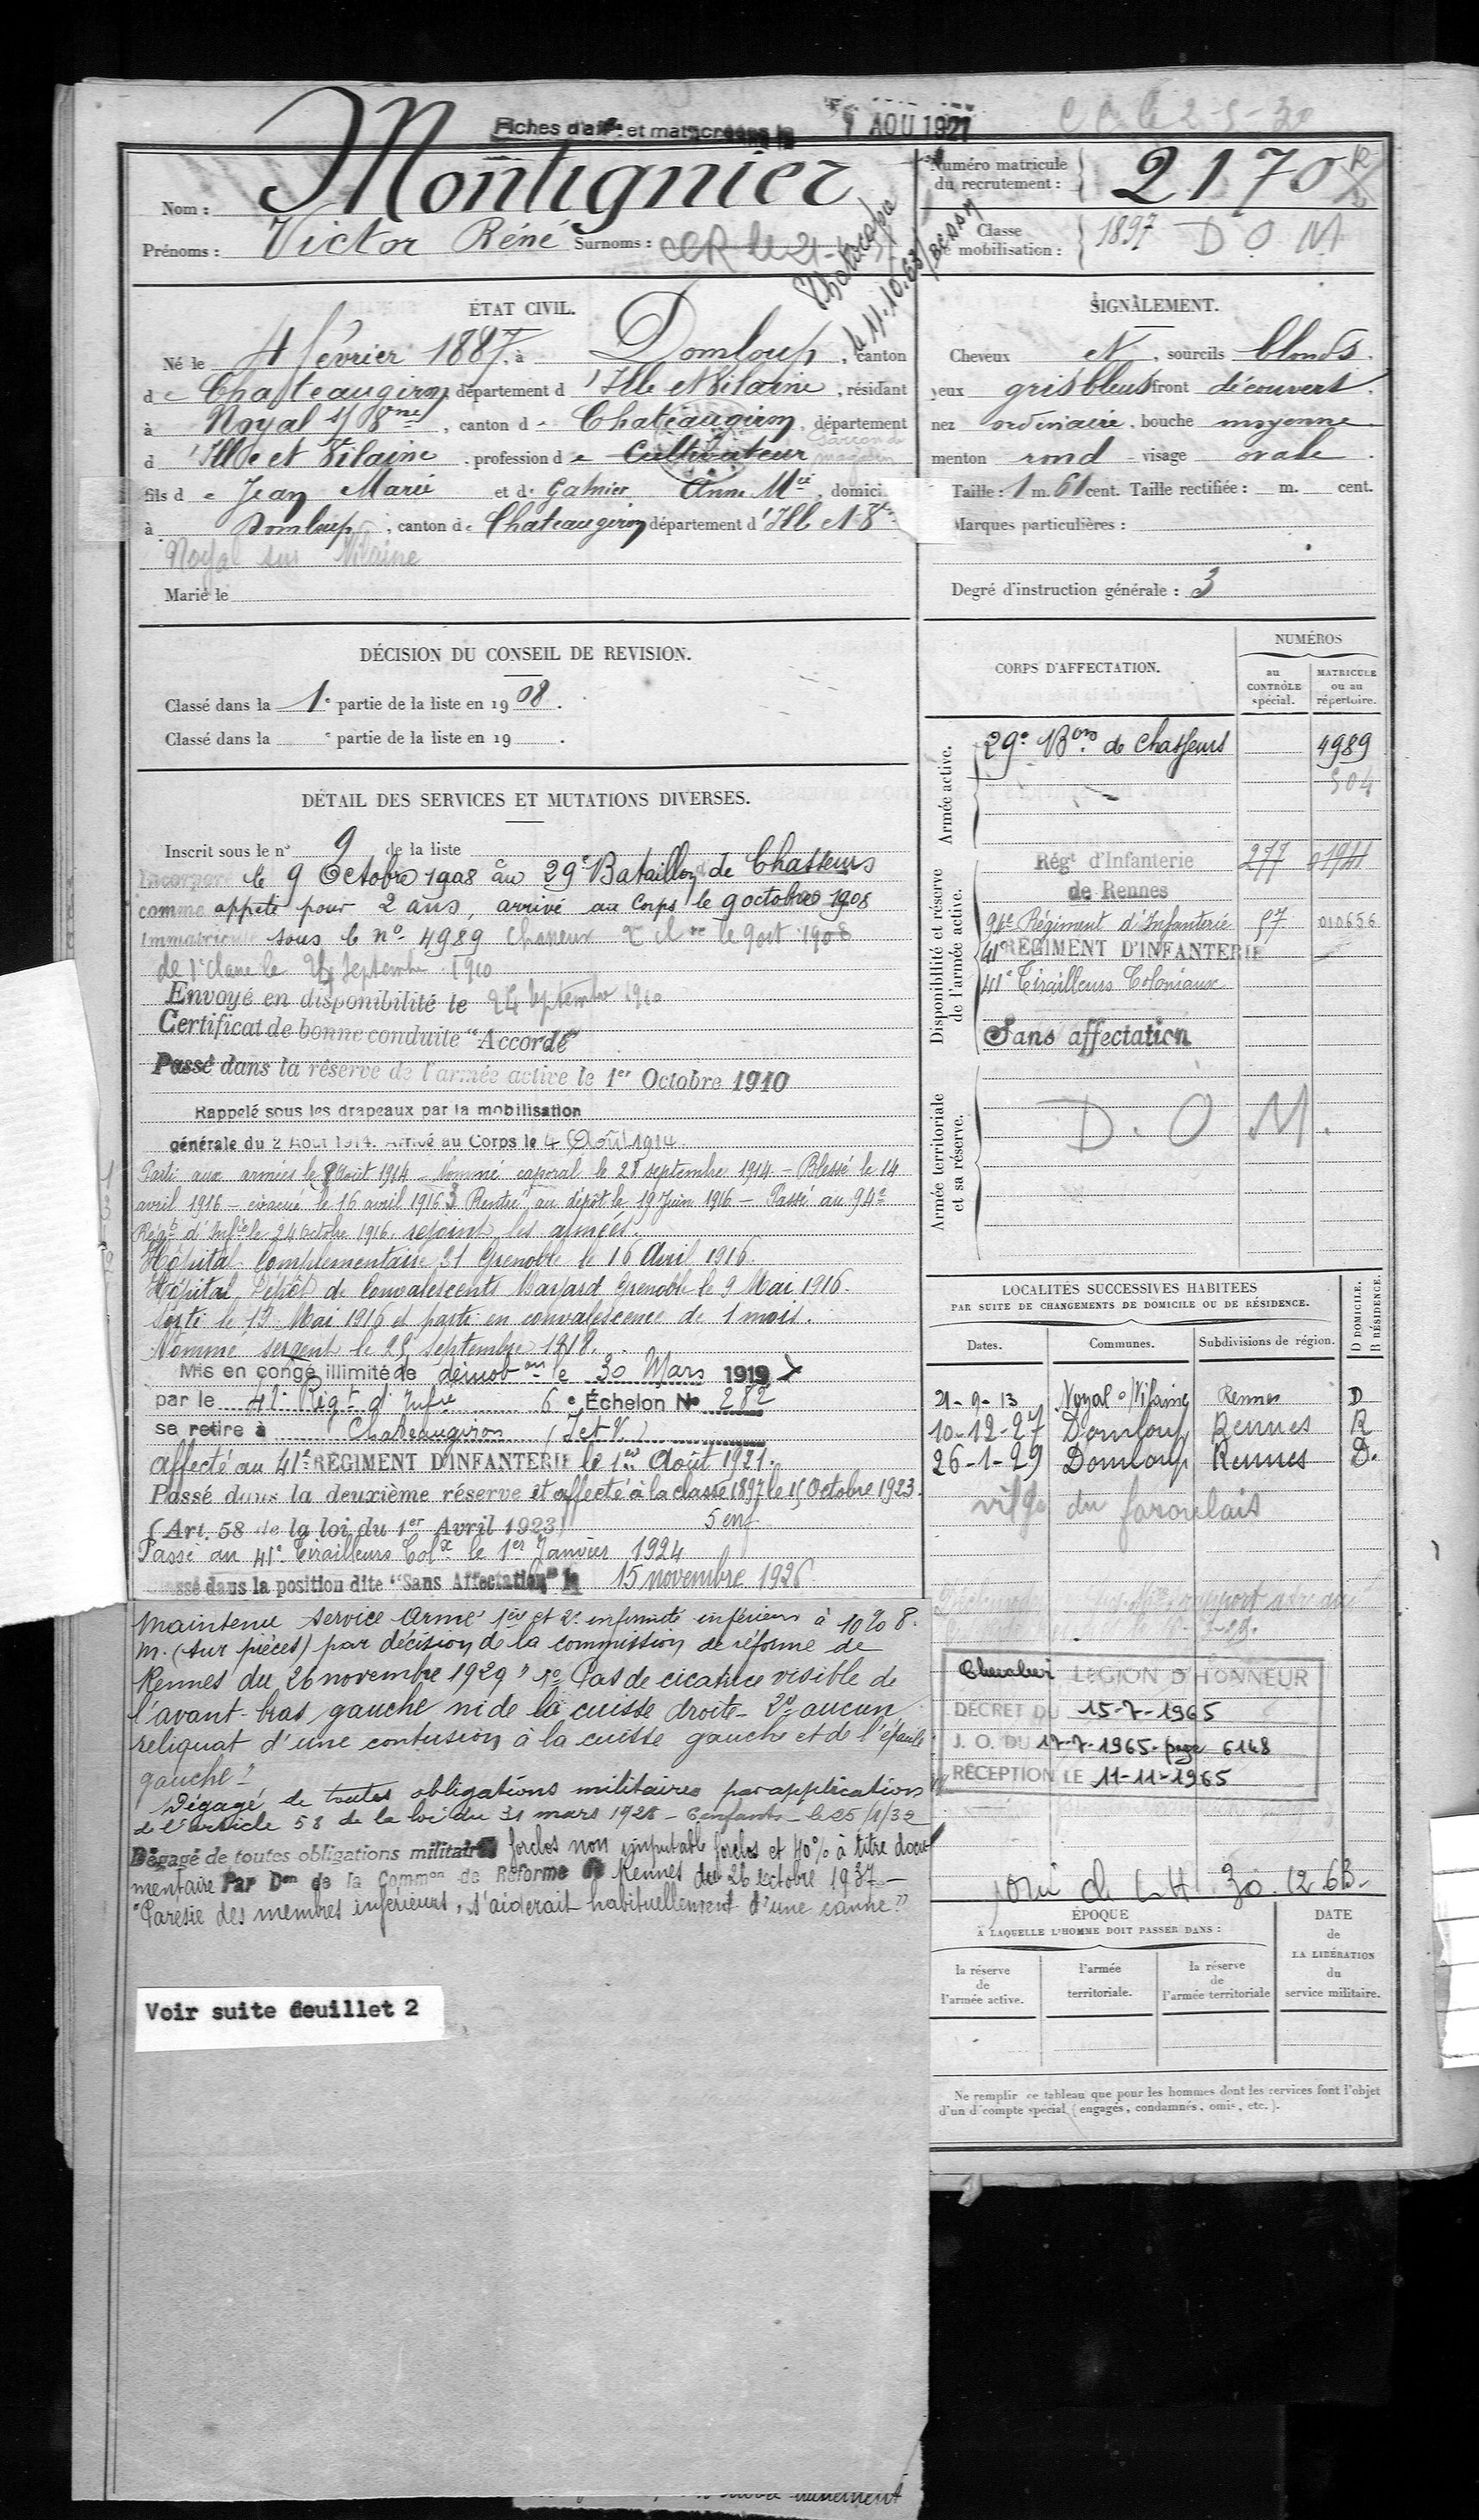 Fiches d'aff. et mat. créées le
1 AOU 1921
Numéro matricule
du recrutement :
2170
Nom : Montignier
Prénoms : Victor Réné Surnoms :
Classe
de mobilisation :
1897 D O M
Photocopie
le 11.10.63
ÉTAT CIVIL.
Né le 4 février 1887, à Domloup, canton
de Chateaugiron, département d'Ille et Vilaine, résidant
à Noyal s/ Vne, canton de Chateaugiron, département
d'Ille et Vilaine, profession de Cultivateur garçon de magasin
fils de Jean Marie et de Gahier Anne Mie, domici
à Domloup, canton de Chateaugiron département d'Ille et Vne
Noyal sur Vilaine
Marié le
SIGNALEMENT.
Cheveux et, sourcils blonds.
yeux gris bleus front découvert
nez ordinaire, bouche moyenne
menton rond visage ovale.
Taille : 1 m. 61 cent. Taille rectifiée : m. cent.
Marques particulières :
Degré d'instruction générale : 3
DÉCISION DU CONSEIL DE REVISION.
Classé dans la 1e partie de la liste en 1908.
Classé dans la e partie de la liste en 19 .
DÉTAIL DES SERVICES ET MUTATIONS DIVERSES.
Inscrit sous le n° 9 de la liste
Incorporé le 9 Octobre 1908 au 29e Bataillon de Chasseurs
comme appelé pour 2 ans, arrivé au Corps le 9 octobre 1908
Immatriculé sous le n° 4989 Chasseur de 2e cl. le 9 oct 1908
de 1e classe le 24 Septembre 1910
Envoyé en disponibilité le 24 Septembre 1910
Certificat de bonne conduite "Accordé"
Passé dans la réserve de l'armée active le 1er Octobre 1910
Rappelé sous les drapeaux par la mobilisation
générale du 2 Aout 1914. Arrivé au Corps le 4 Août 1914
Parti aux armées le 8 Août 1914 Nommé caporal le 28 septembre 1914 – Blessé le 14
avril 1916 – évacué le 16 avril 1916 Rentré au dépôt le 19 Juin 1916 – Passé au 94e
Régt d'Infie le 24 Octobre 1916. rejoint les armées.
Hôpital Complémentaire 31 Grenoble le 16 Avril 1916.
Hôpital Dépôt de Convalescents Bayard Grenoble le 9 Mai 1916.
Sorti le 13 Mai 1916 et parti en convalescence de 1 mois.
Nommé sergent le 25 septembre 1918.
Mis en congé illimité de démobon le 30 Mars 1919
par le 41e Régt d'Infie 6e Échelon No 282
se retire à Chateaugiron (I et V)
affecté au 41e RÉGIMENT D'INFANTERIE le 1er Août 1921.
Passé dans la deuxième réserve et affecté à la classe 1897 le 15 Octobre 1923.
(Art. 58 de la loi du 1er Avril 1923) 5 enf
Passé au 41e Tirailleurs Colx le 1er Janvier 1924
Classé dans la position dite "Sans Affectation" le 15 novembre 1926
Maintenu service Armé 1ère et 2e infirmité inférieurs à 10%
M. (sur pièces) par décision de la commission de réforme de
Rennes du 26 novembre 1929 " 1° Pas de cicatrice visible de
l'avant-bras gauche ni de la cuisse droite – 2° aucun
reliquat d'une contusion à la cuisse gauche et de l'épaule
gauche"
Dégagé de toutes obligations militaires par application
de l'article 58 de la loi du 31 mars 1928 – 6 enfants – le 25/1/32
Dégagé de toutes obligations militaires forclos non imputable forclos et 40% à titre docu
mentaire Par Don de la Common de Réforme de Rennes du 26 octobre 1937 –
"Parésie des membres inférieurs, s'aiderait habituellement d'une canne"
Voir suite feuillet 2
CORPS D'AFFECTATION.
NUMÉROS
au
CONTRÔLE
spécial.
MATRICULE
ou au
répertoire.
Armée active.
29e Bon de Chasseurs 4989
504
Disponibilité et réserve
de l'armée active.
Régt d'Infanterie 277 1941
de Rennes
94e Régiment d'Infanterie 57 010656
41e RÉGIMENT D'INFANTERIE
41e Tirailleurs Coloniaux
Sans affectation
Armée territoriale
et sa réserve.
D. O M.
LOCALITÉS SUCCESSIVES HABITÉES
PAR SUITE DE CHANGEMENTS DE DOMICILE OU DE RÉSIDENCE.
Dates. Communes. Subdivisions de région. D DOMICILE. R RÉSIDENCE.
21-9-13 Noyal s/Vilaine Rennes D
10-12-27 Domloup Rennes R
26-1-29 Domloup Rennes D.
vilge du
Chevalier LEGION D'HONNEUR
DECRET DU 15-7-1965
J. O. DU 17-7-1965. page 6148
RÉCEPTION LE 11-11-1965
30.12.63
ÉPOQUE
À LAQUELLE L'HOMME DOIT PASSER DANS :
la réserve
de
l'armée active.
l'armée
territoriale.
la réserve
de
l'armée territoriale
DATE
de
LA LIBÉRATION
du
service militaire.
Ne remplir ce tableau que pour les hommes dont les services font l'objet
d'un décompte spécial (engagés, condamnés, omis, etc.).